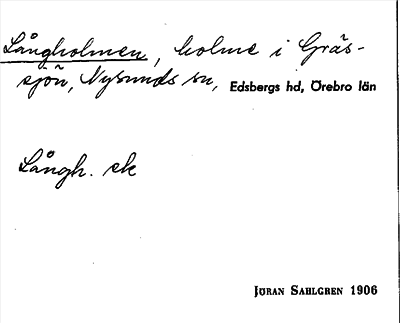 Långholmen, holme i Gräs-
sjön, Nysunds sn, Edsbergs hd, Örebro län
Långh. ek
JÖRAN SAHLGREN 1906